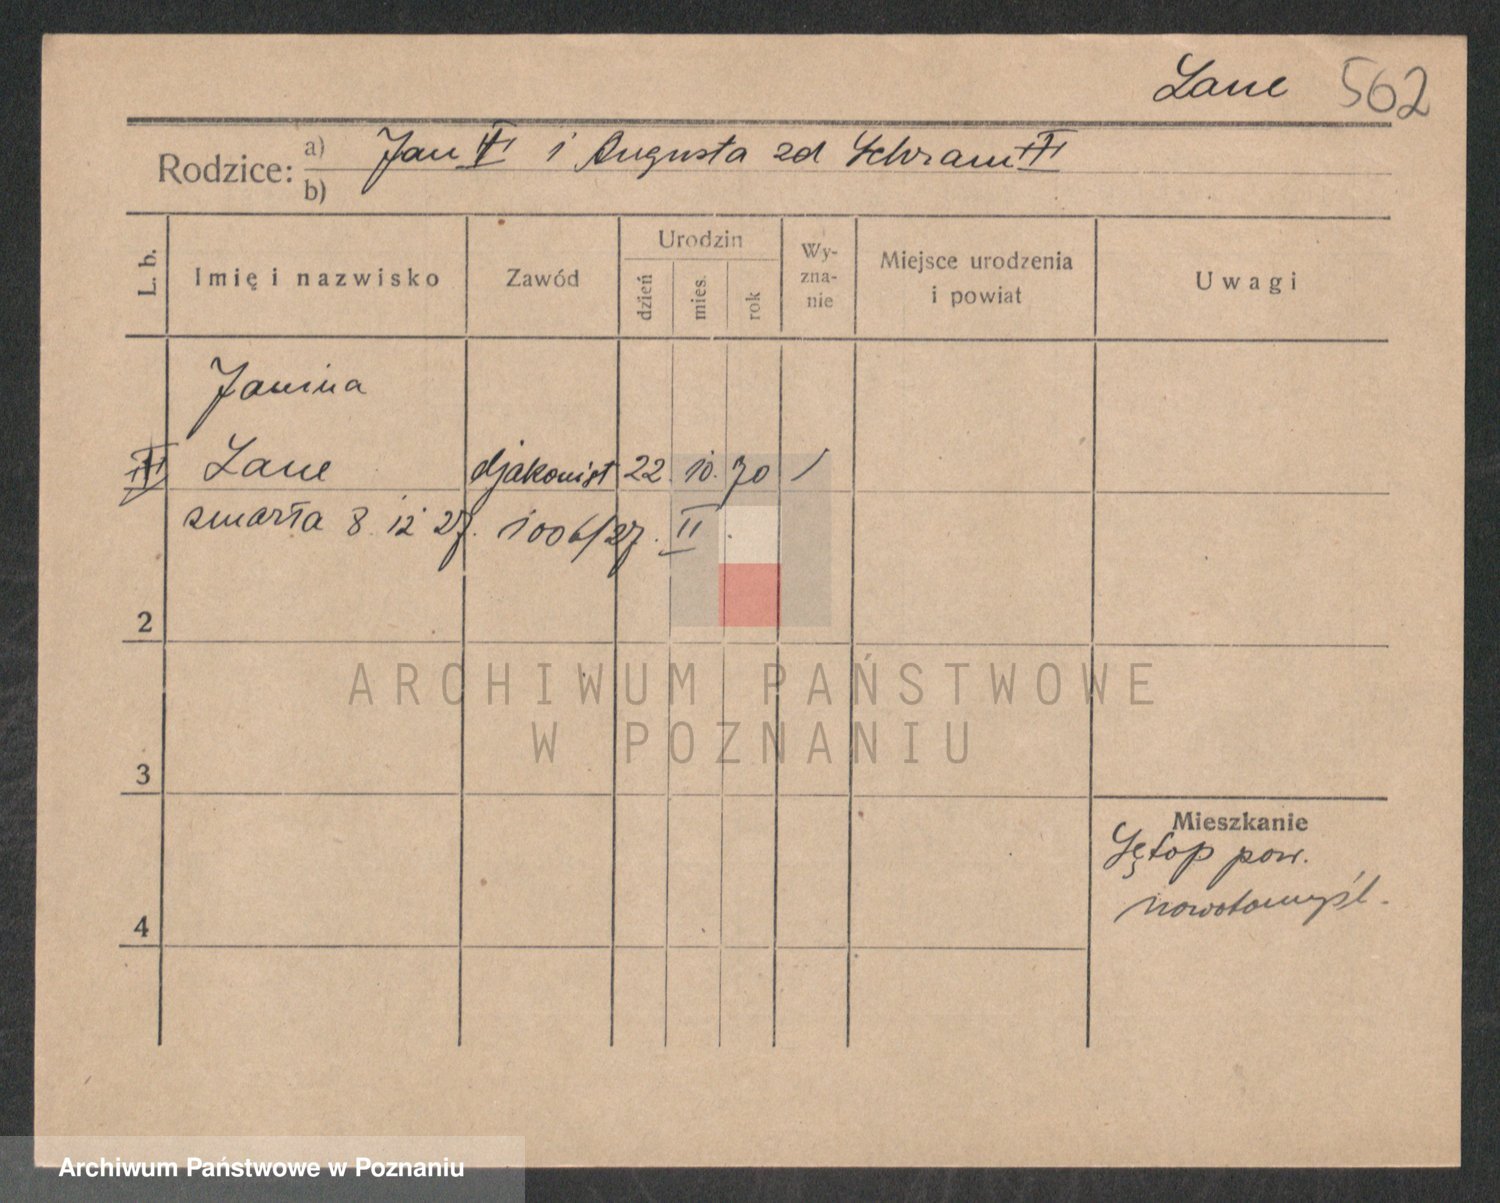 Lane 562
Rodzice: a) Jan i Augusta zd Schram
b)
L. b.
Imię i nazwisko
Zawód
Urodzin
dzień
mies.
rok
Wy-
zna-
nie
Miejsce urodzenia
i powiat
Uwagi
Janina
Lane djakonist 22. 10. 70 /
zmarła 8 12 27. 1006/27. II
2
3
4
Mieszkanie
Sętop pow.
nowotomyśl.
ARCHIWUM PAŃSTWOWE
W POZNANIU
Archiwum Państwowe w Poznaniu